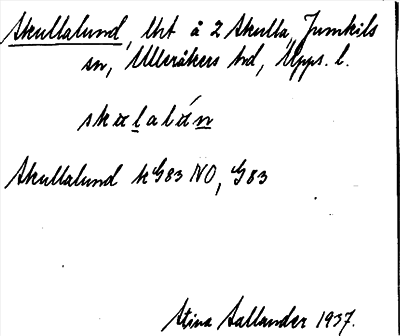 Skullalund, lht å 2 Skulla, Jumkils
sn, Ulleråkers hd, Upps. l.
skalalán
Skullalund k G83 NO, G83
Stina Sallander 1937.